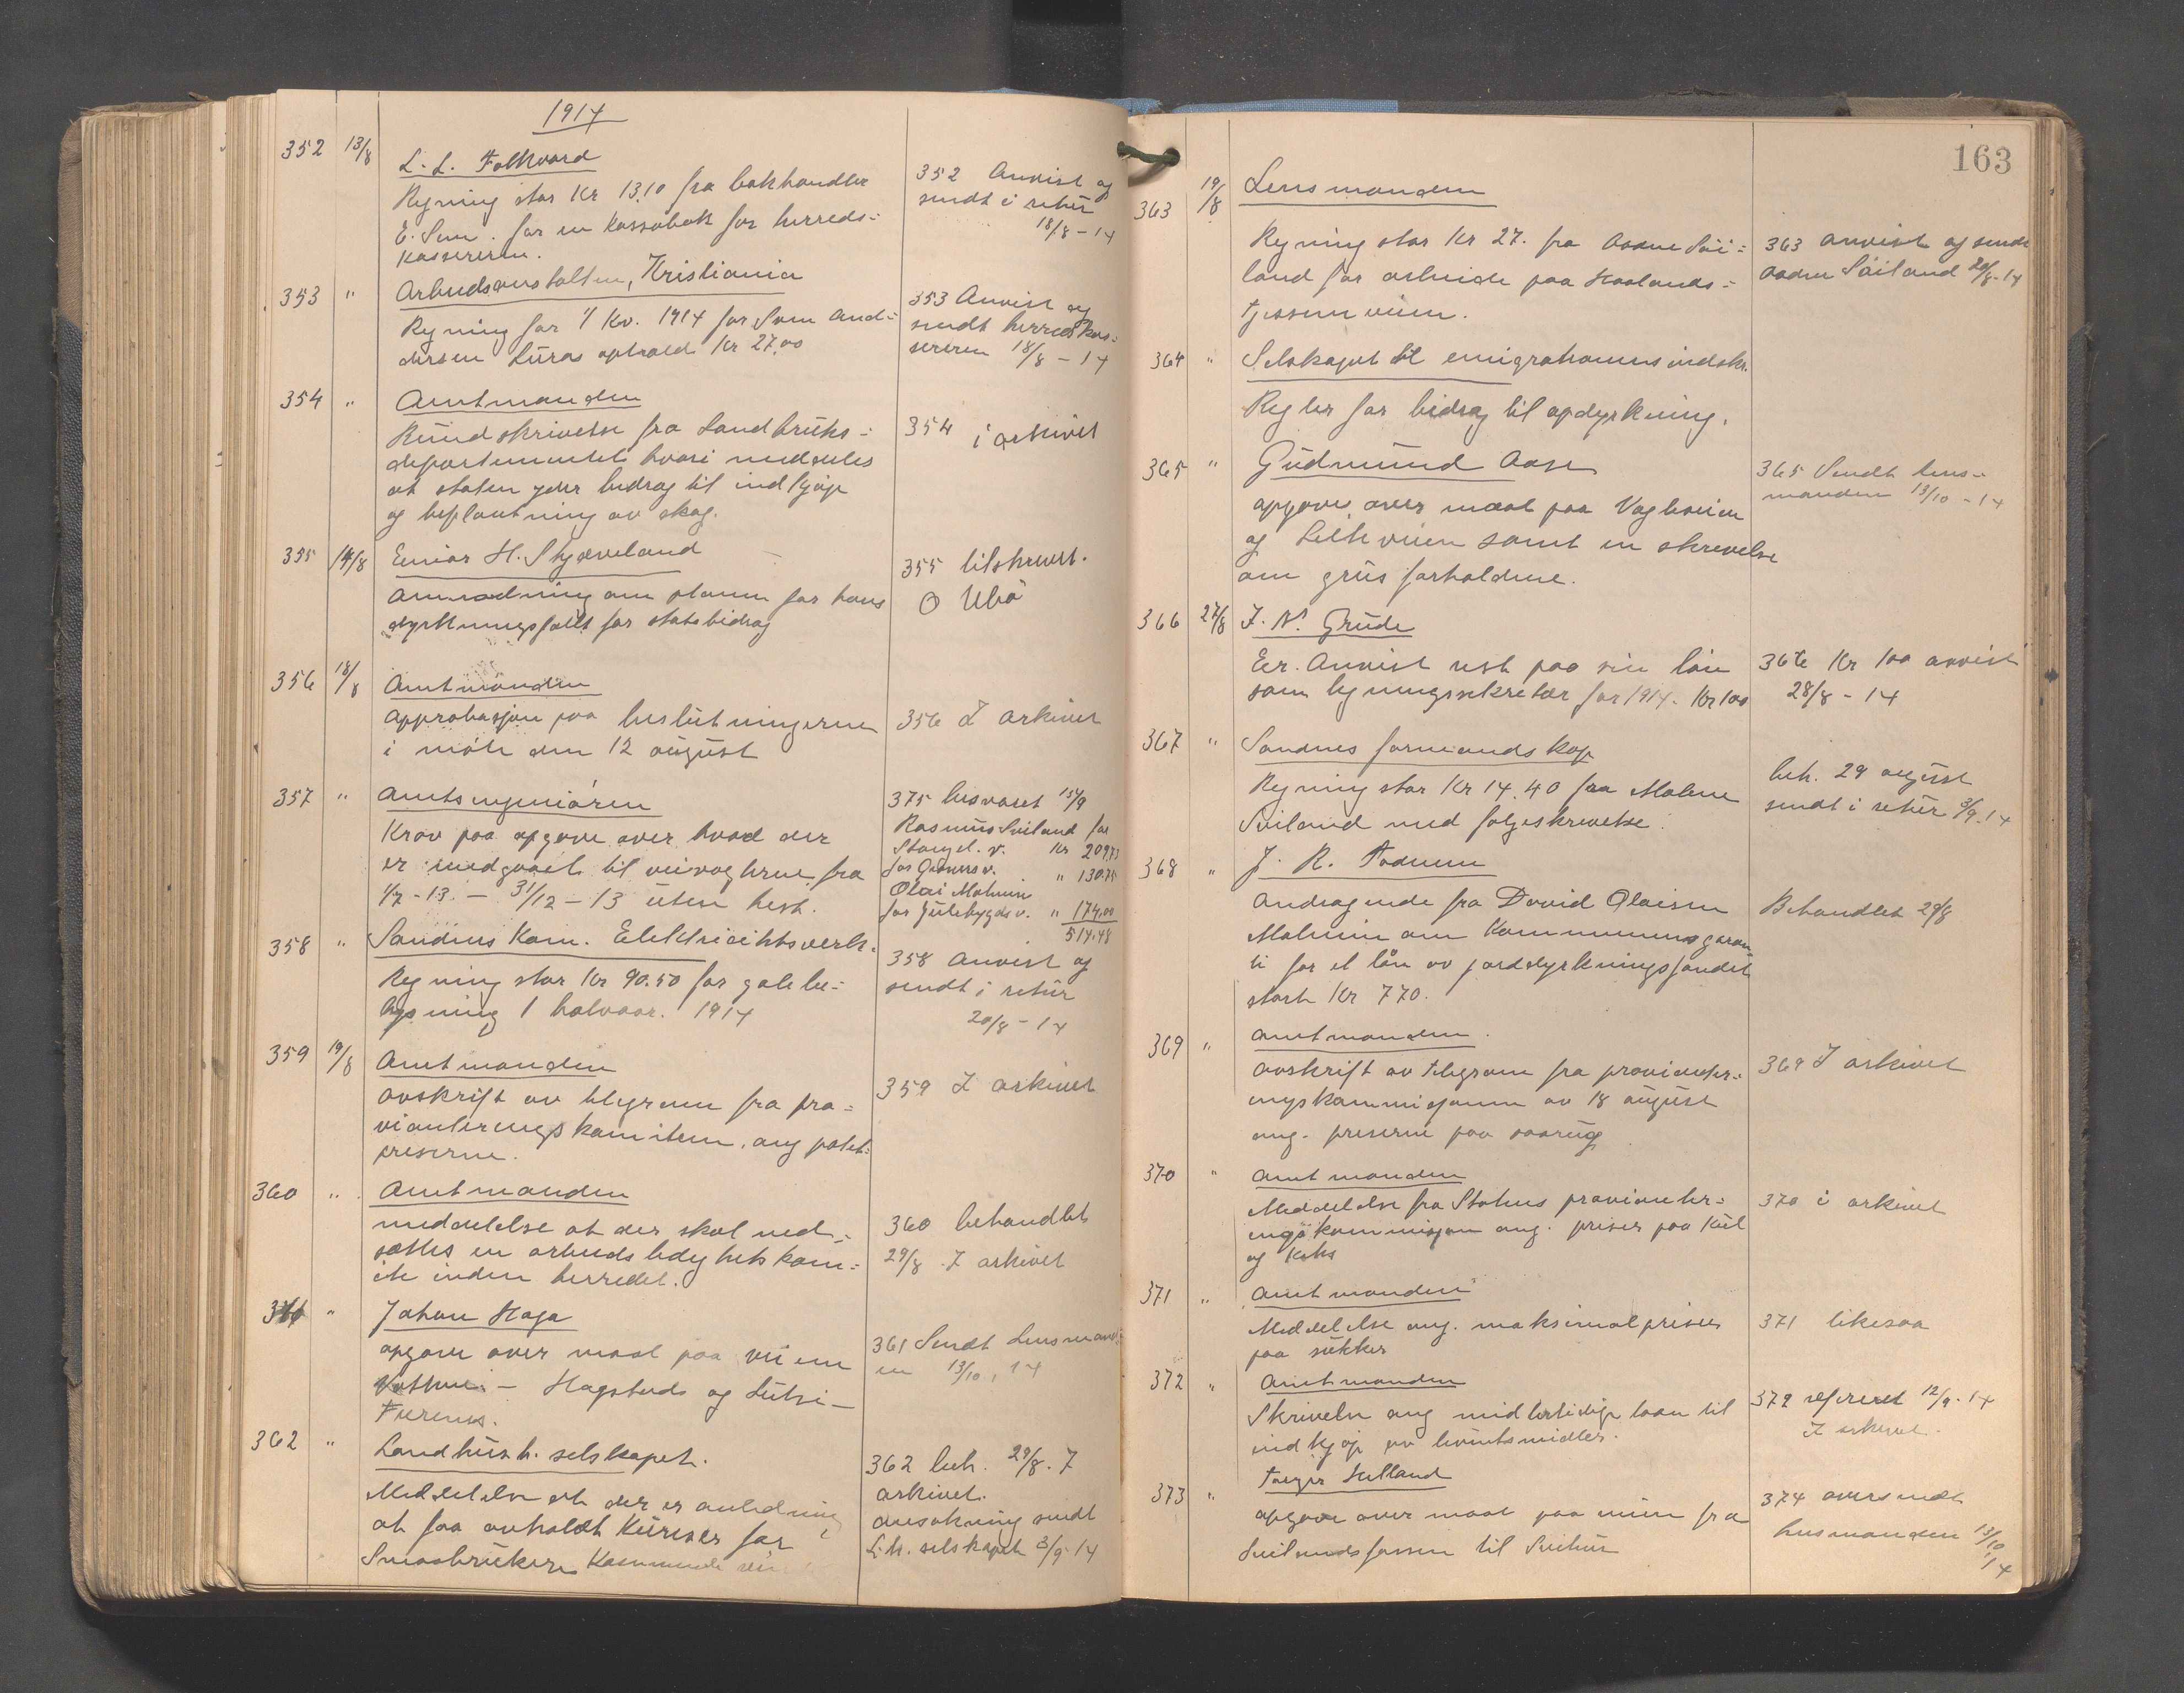 1914
352 13/8 L. L. Folkvord
Regning stor Kr 13.10 fra bokhandler
E. Sem. for en Kassabok for herreds-
kassereren.
352 Anvist og
sendt i retur
18/8 - 14
353 " Arbeidsanstalten, Kristiania
Regning for 1/ Kv. 1914 for Sven And-
dersen Luras ophold Kr 27.00
353 Anvist og
sendt herredskas-
sereren 18/8 - 14
354 " Amtmanden
Rundskrivelse fra Landbruks-
departementet hvori meddeles
at staten yder bidrag til indkjøp
og beplantning av skog.
354 i arkivet
355 14/8 Einar H. Skjæveland
Anmodning om planen for hans
dyrkningsfelt for statsbidrag
355 tilskrevet.
O Ubø
356 18/8 Amtmanden
Approbasjon paa beslutningerne
i møte den 12 august
356 I arkivet
357 " Amtsingeniøren
Krav paa opgave over hvad der
er medgaat til veivogterne fra
1/7 - 13. - 31/12 - 13 uten hest.
375 besvaret 15/9
Rasmus Sviland for
Stangel. v. Kr 209.73
for Gramsv. " 130.75
Olai Malmin
for Julebygdv. " 174,00
514.48
358 " Sandnes Kom. Elektricitetsverk.
Regning stor Kr 90.50 for gatebe-
lysning 1 halvaar. 1914
358 Anvist og
sendt i retur
20/8 - 14
359 19/8 Amtmanden
Avskrift av telegram fra pro-
vianteringskomiteen. ang potet-
priserne.
359 I arkivet
360 " Amtmanden
meddelelse at der skal ned-
sættes en arbeidsledighetskom-
ite inden herredet.
360 behandlet
29/8 . I arkivet
361 " Johan Haga
opgave over maal paa veiene
Vatne - Hogstads og Lutsi-
361 Sendt Lensmand-
en 13/10, 14
362 " Landhush. selskapet.
Meddelelse at der er anledning
at faa avholdt Kurser for
Smaabrukere
362 beh. 29/8. I
arkivet.
ansøkning sendt
L.h. selskapet 3/9 14
163
363 19/8 Lensmanden
Regning stor Kr 27. fra Aadne Søi-
land for arbeide paa Hoolands-
tjessem veien.
363 anvist og sendt
Aadne Søiland 20/8-14
364 " Selskapet til emigrationens indskr.
Regler for bidrag til opdyrkning.
365 " Gudmund Aase
opgave over maal paa Vagleveien
og veien samt en skrivelse
om grusforholdene.
365 Sendt lens-
manden 13/10 - 14
366 27/8 J. N. Grude
Er. Anvist rest paa sin løn
som ligningssekretær for 1914. Kr 100
366 Kr 100 anvist
28/8 - 14
367 " Sandnes formandskap
Regning stor Kr 14.40 fra Malene
Sviland med følgeskrivelse.
beh. 29 august
sendt i retur 3/9. 14
368 " J. R. Fodnem
Andragende fra David Olaisen
Malmin om Kommunens garan-
ti for et lån av jorddyrkningsfondet
stort Kr 770.
Behandlet 29/8
369 " Amtmanden.
Avskrift av telegram fra provianter-
ingskommisjonen av 18 august
ang. priserne paa saarug
369 I arkivet
370 " Amtmanden
Meddelelse fra Statens provianter-
ingskommisjon ang. priser paa Kul
og Koks
370 i arkivet
371 " Amtmanden
Meddelelse ang. maksimalpriser
paa sukker
371 likesaa
372 " Amtmanden
Skrivelse ang midlertidige laan til
indkjøp av levnetsmidler.
372 refereret 12/9. 14
I arkivet.
373 " Torger Hetland
opgave over maal paa veien fra
Svilandsfossen til
374 oversendt
lensmanden 13/10 14